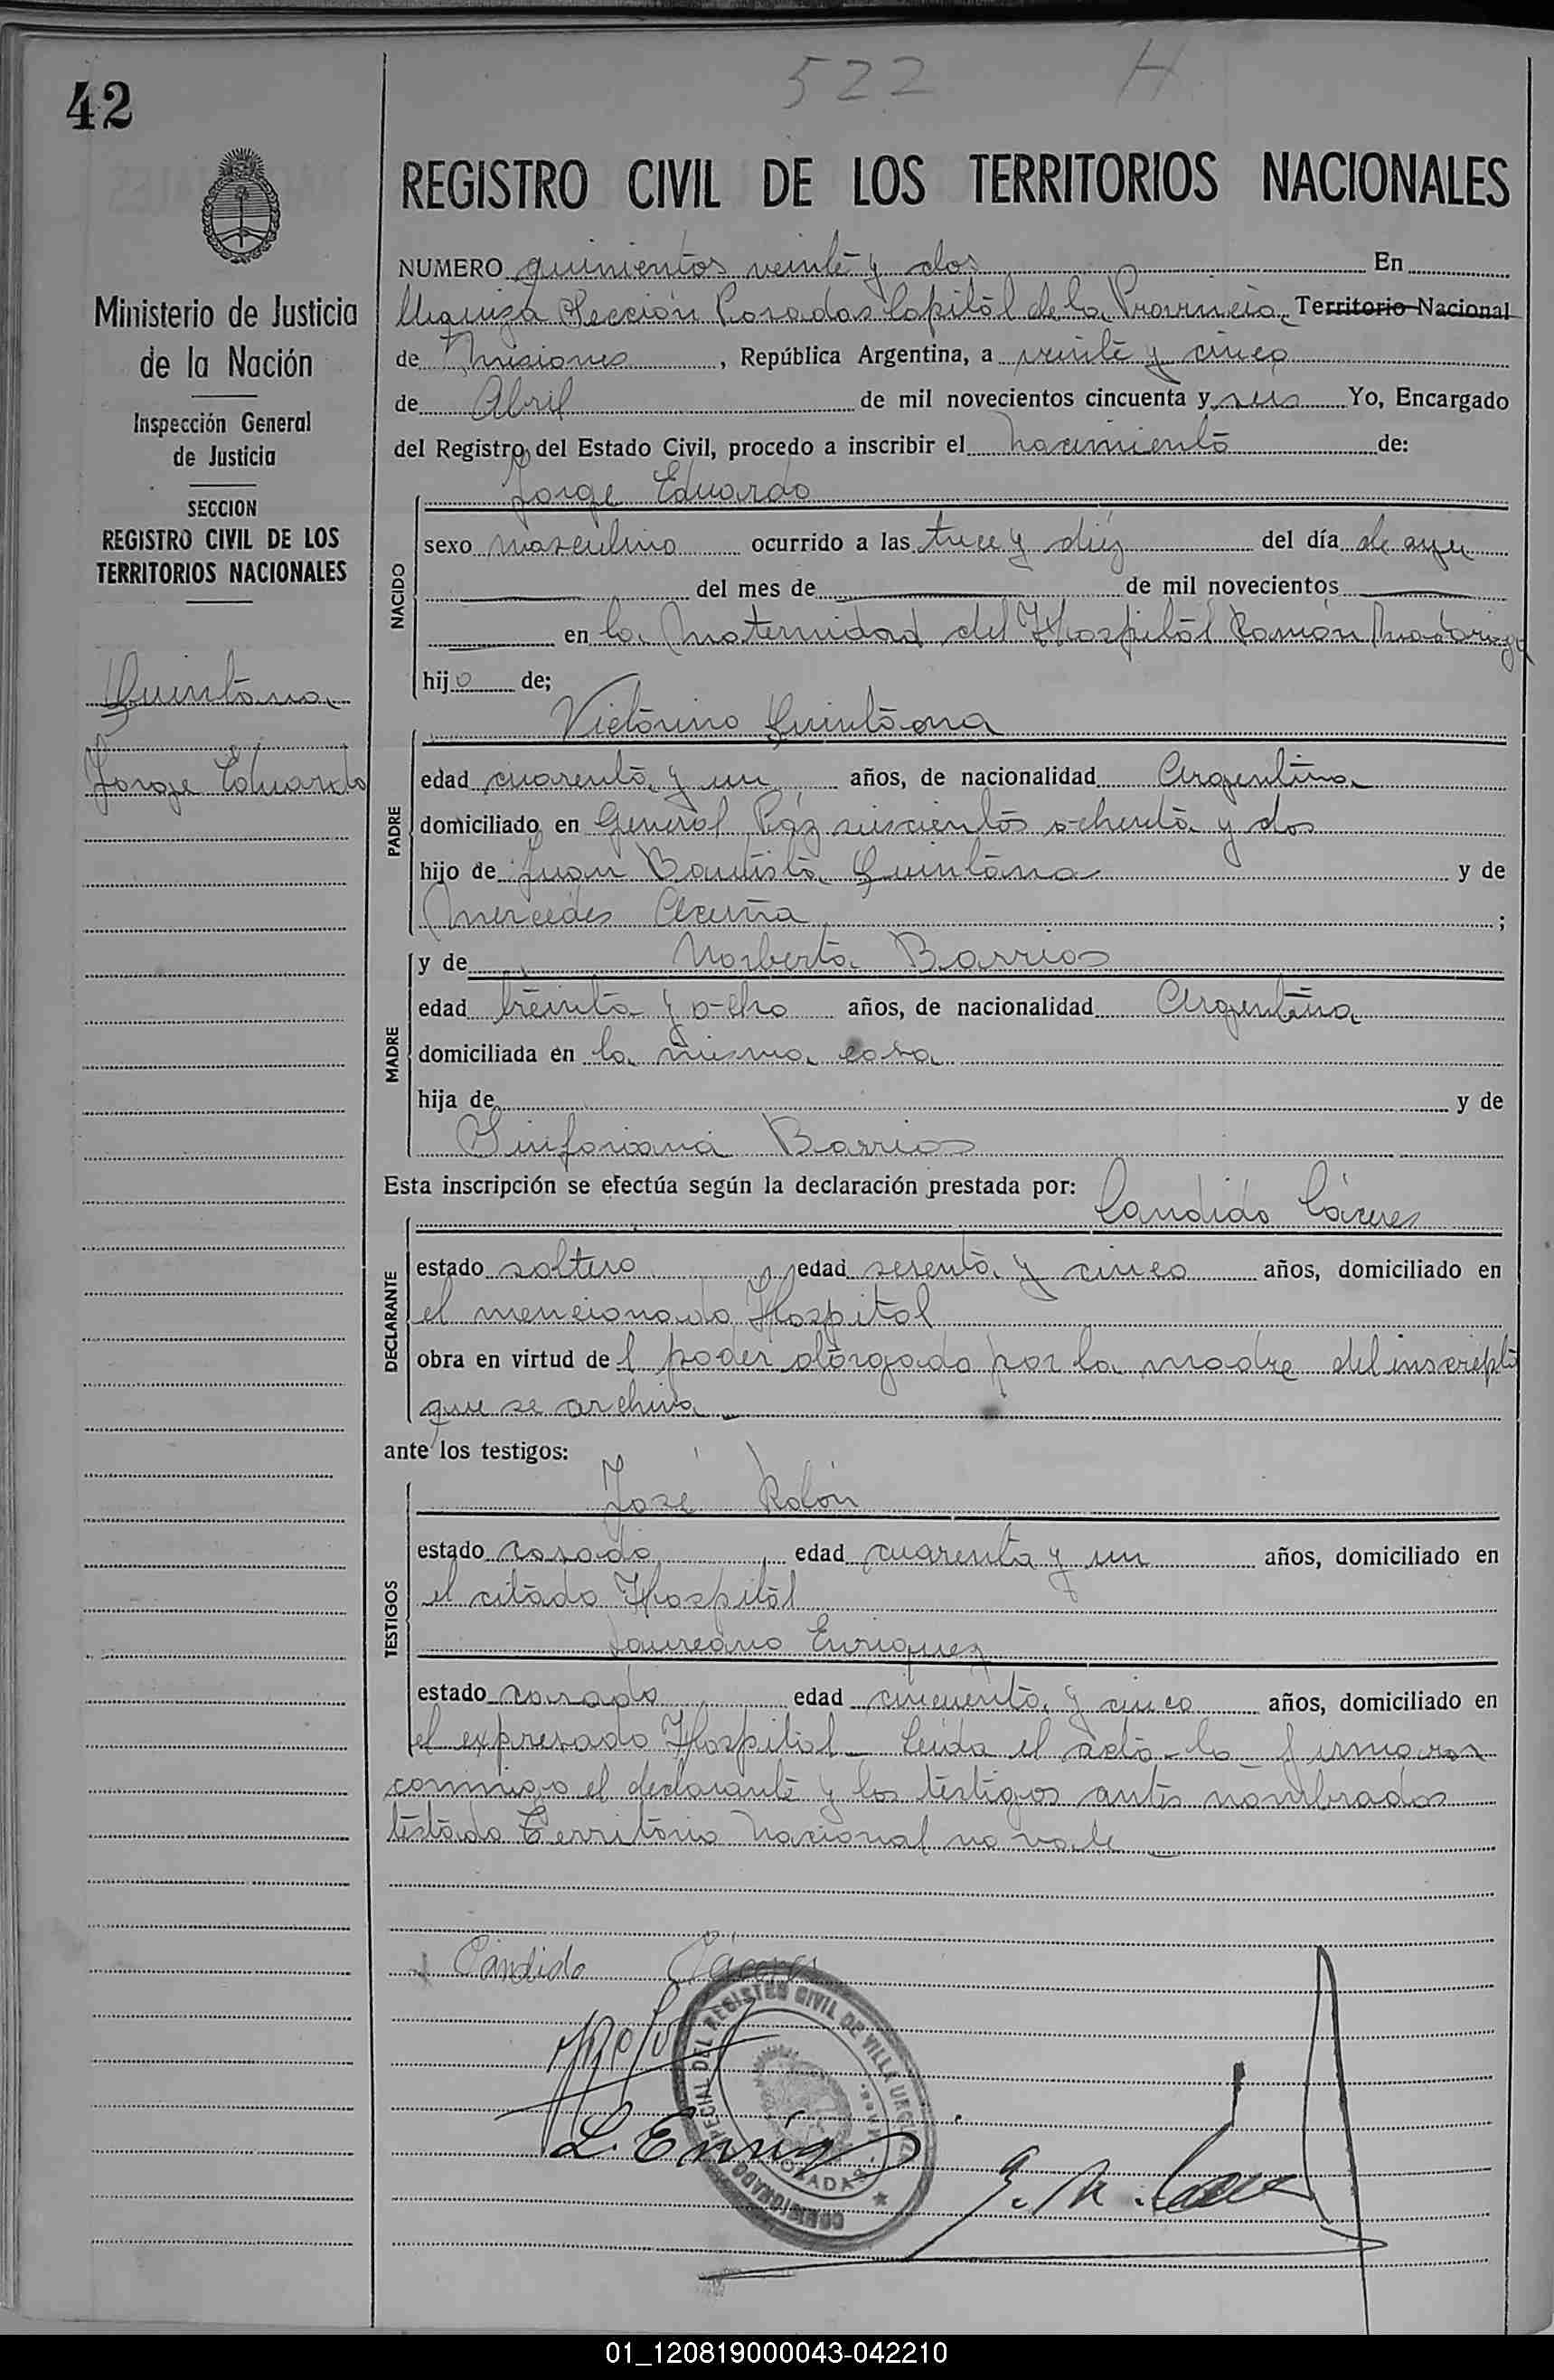 522 H
42
REGISTRO CIVIL DE LOS TERRITORIOS NACIONALES
Ministerio de Justicia
de la Nación
Inspección General
de Justicia
SECCION
REGISTRO CIVIL DE LOS
TERRITORIOS NACIONALES
Quintana
Jorge Eduardo
NUMERO quinientos veinte y dos En
Urquiza Sección Posadas Capital de la Provincia Territorio Nacional
de Misiones, República Argentina, a veinte y cinco
de Abril de mil novecientos cincuenta y seis Yo, Encargado
del Registro del Estado Civil, procedo a inscribir el nacimiento de:
NACIDO
Jorge Eduardo
sexo masculino ocurrido a las trece y diéz del día de ayer
del mes de de mil novecientos
en la Maternidad del Hospital Ramón Madariaga
hijo de;
PADRE
Victorino Quintana
edad cuarenta y un años, de nacionalidad Argentina
domiciliado en General Páz seiscientos ochenta y dos
hijo de Juan Bautista Quintana y de
Mercedes Acuña;
MADRE
y de Norberta Barrios
edad treinta y ocho años, de nacionalidad Argentina
domiciliada en la misma casa
hija de y de
Sinforiana Barrios
Esta inscripción se efectúa según la declaración prestada por: Candido Cáceres
DECLARANTE
estado soltero edad sesenta y cinco años, domiciliado en
el mencionado Hospital
obra en virtud del poder otorgado por la madre del inscripto
que se archiva
ante los testigos:
TESTIGOS
José Rolón
estado casado edad cuarenta y un años, domiciliado en
el citado Hospital
Laureano Enriquez
estado casado edad cincuenta y cinco años, domiciliado en
el expresado Hospital - Leida el acta la firmaron
conmigo el declarante y los testigos antes nombrados
testado Territorio Nacional no vale
Candido Cáceres
L. Enriq
REGISTRO CIVIL DE VILLA URQUIZA
POSADAS
01_120819000043-042210